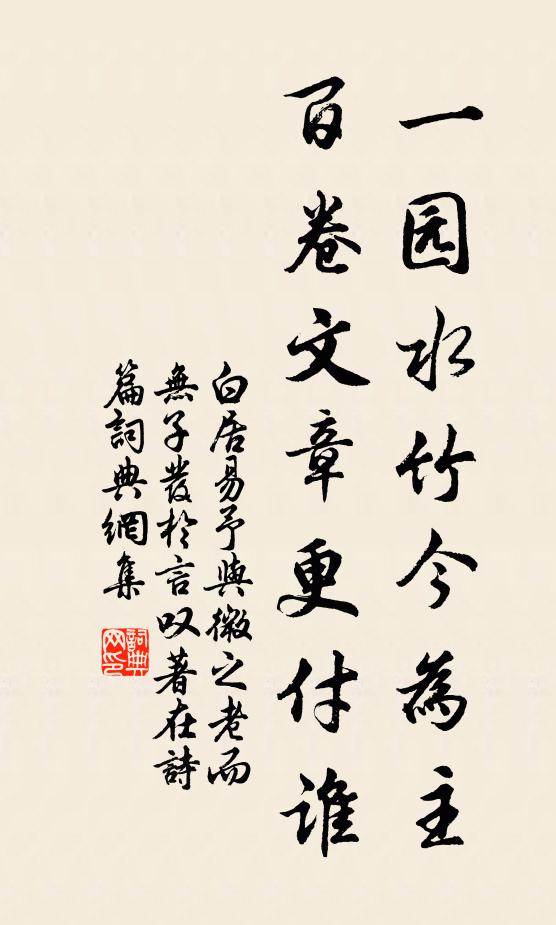 一园水竹今為主
百卷文章更付谁
白居易予與微之老而
無子發於言叹著在詩
篇詞典網集
詞典网印